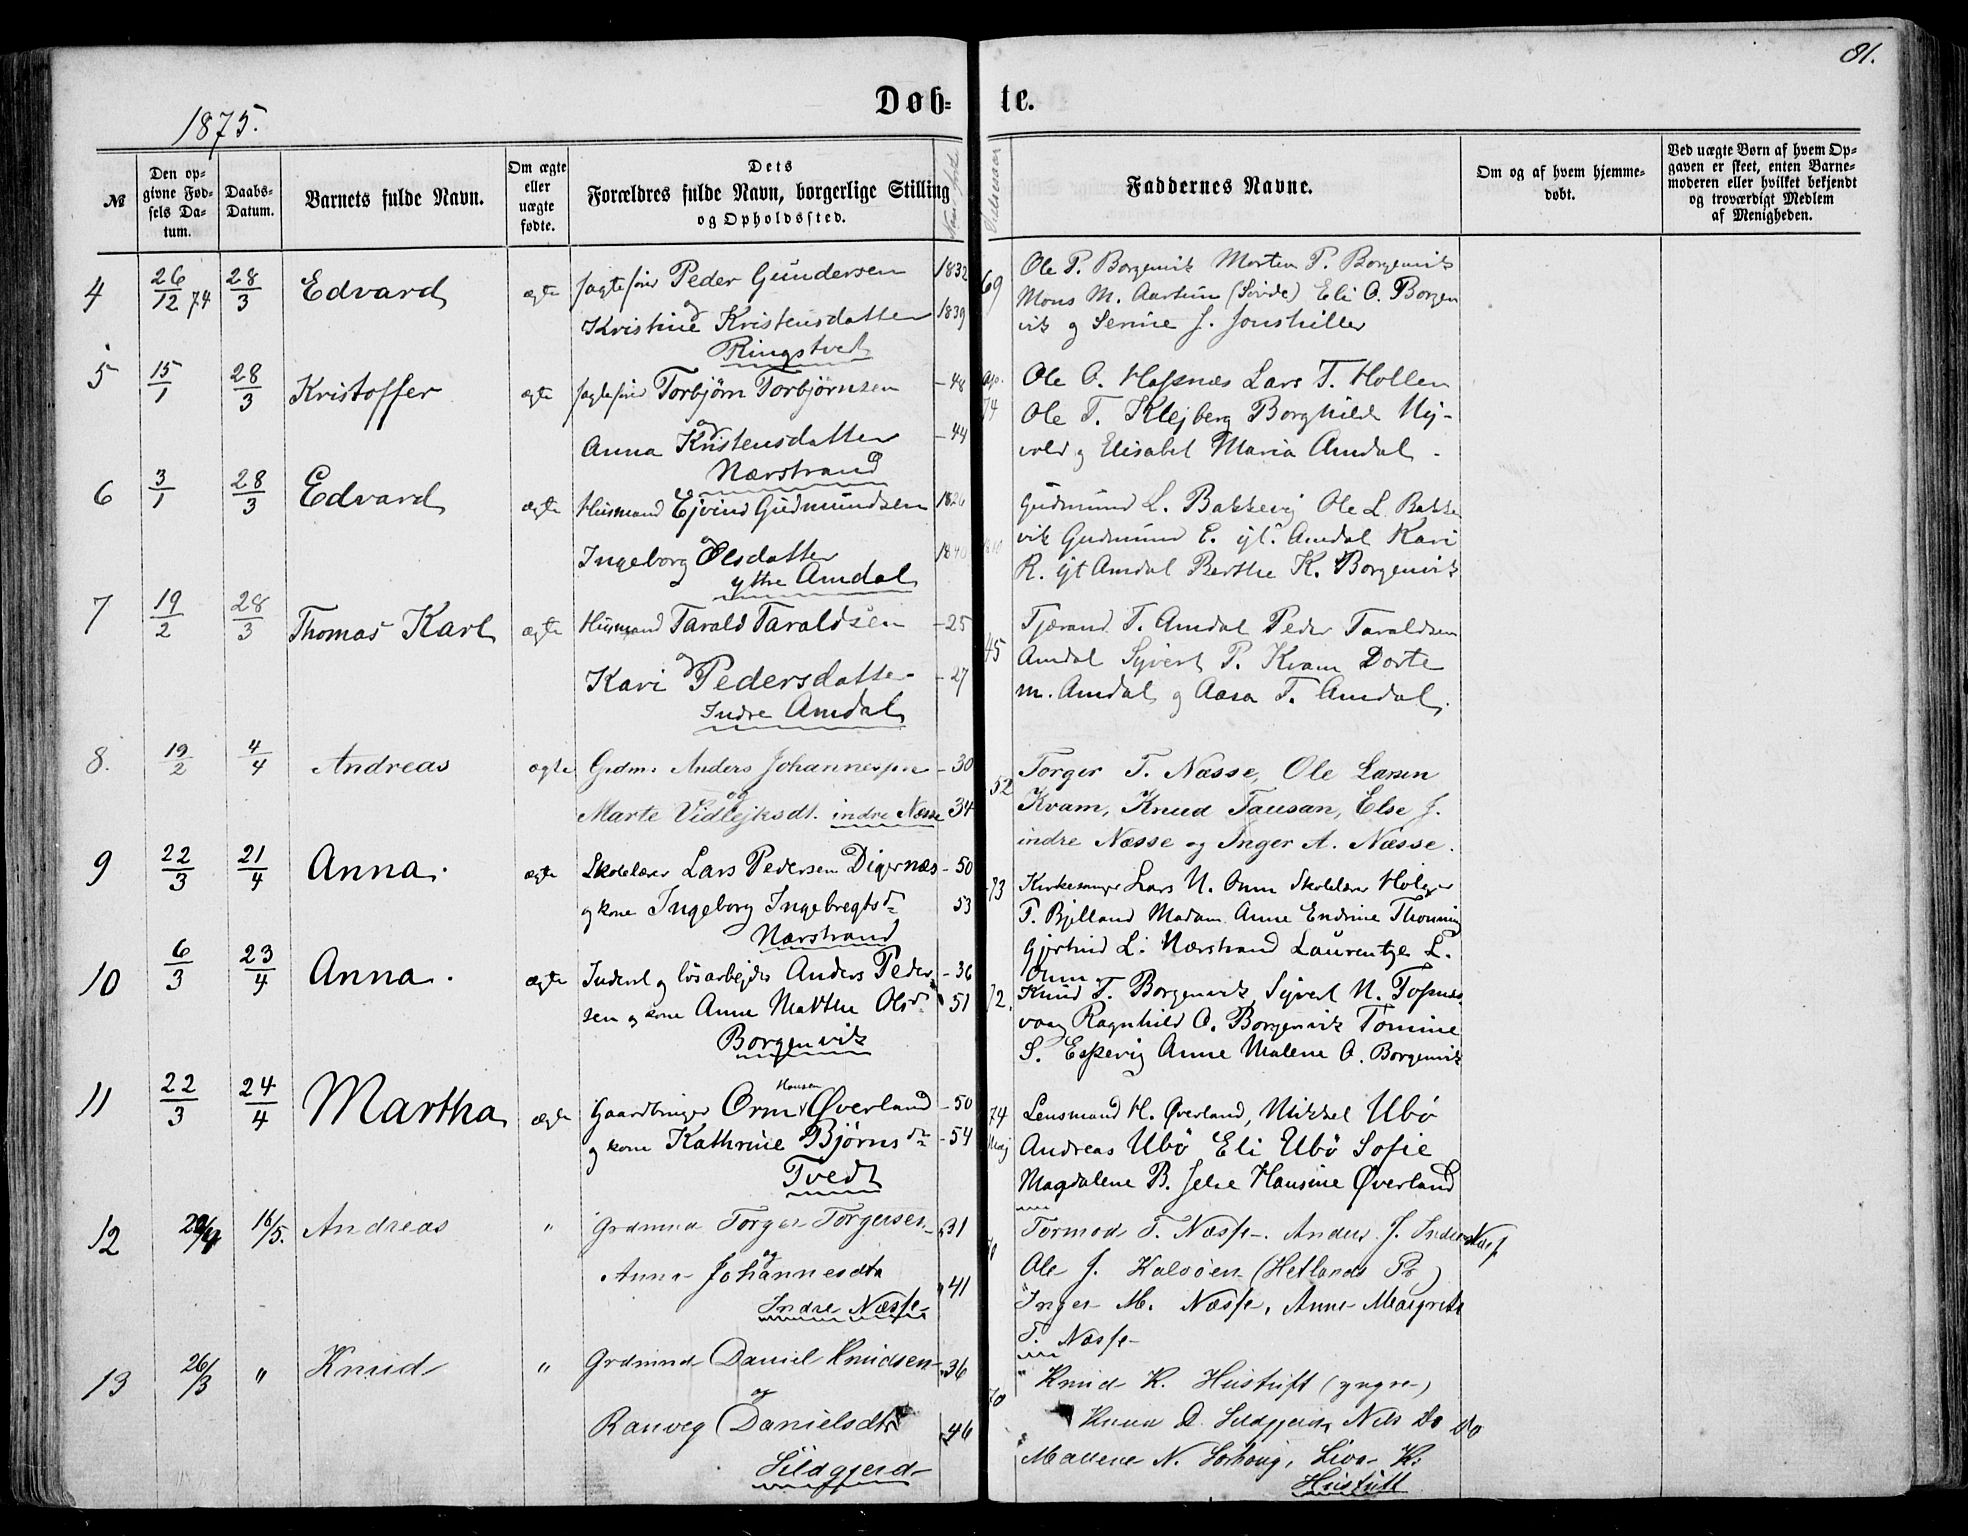 81.
1875.
Døb- te.
№
Den opgivne Fødsels Datum.
Daabs-Datum.
Barnets fulde Navn.
Om ægte eller uægte fødte.
Dets Forældres fulde Navn, borgerlige Stilling og Opholdssted.
Faddernes Navne.
Om og af hvem hjemmedøbt.
Ved uægte Børn af hvem Opgaven er skeet, enten Barnemoderen eller hvilket bekjendt og troværdigt Medlem af Menigheden.
4 26/12 74 28/3 Edvard ægte Jagtefører Peder Gundersen 1832
og Kristine Kristensdatter 1839
Ringstved
69 Ole P. Borgenvik Morten P. Borgenvik
Mons M. Aartun (Søvde) Eli O. Borgen
vik og Serine J. Jonshiller
5 15/1 28/3 Kristoffer ægte Jagtefører Torbjørn Torbjørnsen - 48
og Anna Kristensdatter - 44
Nærstrand
74 Ole O. Høsnæs Lars T. Hollen
Ole T. Klejberg Borghild Ny-
vold og Elisabet Maria Amdal -
6 3/1 28/3 Edvard ægte Husmand Ejvind Gudmundsen 1826
og Ingeborg Olsdatter 1840
ytre Amdal
Gudmund L. Bakkevig Ole L. Bakke
vik Gudmund E. yt. Amdal Kari
R. yt Amdal Berthe K. Borgenvik
7 19/2 28/3 Thomas Karl ægte Husmand Tarald Taraldsen - 25
og Kari Pedersdatter - 27
Indre Amdal
45 Tjærand T. Amdal Peder Taraldsen
Amdal Syvert P. Kvam Dorte
M. Amdal og Aasa T. Amdal.
8. 19/2 4/4 Andreas ægte Grdm. Anders Johannessen - 30
og Marte Vidlejksdt. indre Næsse - 34
52 Torger T. Næsse, Ole Larsen
Kvam, Knud Tausan, Else J.
indre Næsse og Inger A. Næsse.
9 22/3 21/4 Anna. ægte Skolelærer Lars Pedersen Digernæs - 50
og kone Ingeborg Ingebregtsdr 53
Nærstrand
73 Kirkesanger Lars N. Onm Skolelærer Holger
T. Bjelland Madam Anne Endrine Thonning
Gjertrud L. Nærstrand Laurentze L.
Onm
10 6/3 23/4 Anna. ægte Inderst og løsarbejder Anders Peder - 36
sen og kone Anne Marthe Olsdr - 51
Borgenvik
72. Knud T. Borgenvik, Syvert N. Tofsnes
vaag Ragnhild O. Borgenvik Tomine
S. Espevig Anne Malene O. Borgenvik
11 22/3 24/4 Martha ægte Gaardbruger Orm Hansen Øverland - 50
og kone Kathrine Bjørnsdr - 54
Tvedt
74 Lensmand H. Øverland, Mikkel Ubø
Andreas Ubø Eli Ubø Sofie
Magdalene B. Jelse Hansine Øverland
12 29/4 16/5. Andreas " Grdmnd Torger Torgersen " 31
og Anna Johannesdtr " 41
Indre Næsse
70 Tormod T. Næsse. Anders J. Indre Næss
Ole J. Kalvøen (Hetlands Pr.)
Inger M. Næsse, Anne Margrete
T. Næsse
13 26/3 " Knud " Grdmnd Daniel Knudsen " 36
og Ranveg Danielsdtr " 46
Sildgjerd
70 Knud K. Hustuft (yngre)
Knud D. Sildgjerd, Nils Do Do
Mallene N. Sørhoug, Liva K.
Hustuft